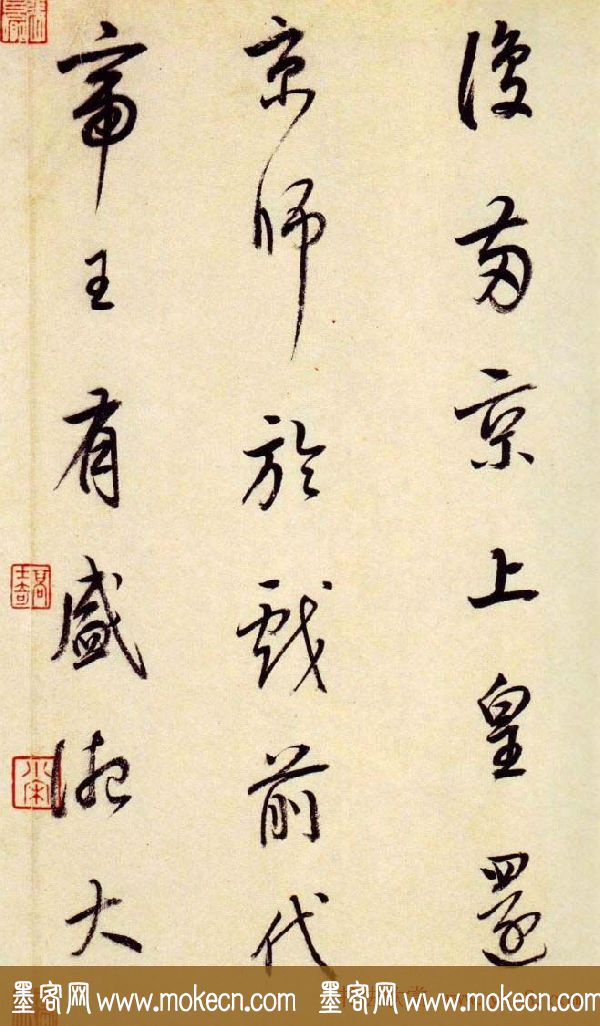 復兩京上皇還
京師於戲前代
帝王有盛德大
墨客网 www.mokecn.com 墨客网 www.mokecn.com